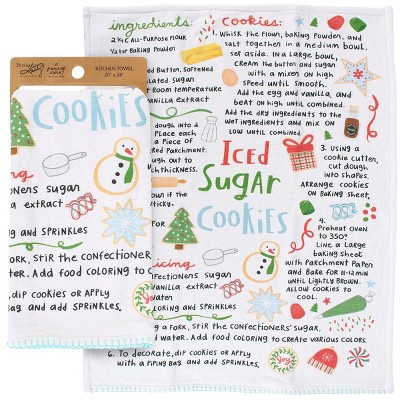 KITCHEN TOWEL
20" x 28"
COOKIES
icing
tioners sugar
la extract
ng and SPRINKLES
Fork, Stir the confectioner
ater. Add food coloring to C
, dip cookies or Apply
Bag and add SPRINKLES.
ingredients:
2 ¾ C All-Purpose Flour
Baking Powder
Butter, Softened
lated Sugar
room temperature
anilla extract
dough into 2
Place each
a Piece of
red Parchment.
ugh out to
thickness.
own if the
sticky.
cookies:
1. Whisk the flour, Baking Powder, and
salt together in a medium bowl.
Set aside. In a large bowl,
Cream the butter and sugar
with a mixer on high
speed until smooth.
Add the egg and vanilla, and
beat on high until combined.
Add the dry ingredients to the
wet ingredients and mix on
low until combined.
Iced
Sugar
Cookies
3. Using a
cookie cutter,
cut dough
into shapes.
Arrange cookies
on Baking sheet.
4.
Preheat oven
to 350°
Line a large
Baking sheet
with Parchment Paper
and Bake for 11-12 min
until lightly Brown.
Allow cookies to
cool.
icing
fectioners sugar
anilla extract
ater
oring and SPRINKLES
ing a Fork, Stir the confectioners' sugar,
d water. Add food coloring to create various colors.
joy
joy
6. To decorate, dip cookies or Apply
with a piping Bag and add SPRINKLES.